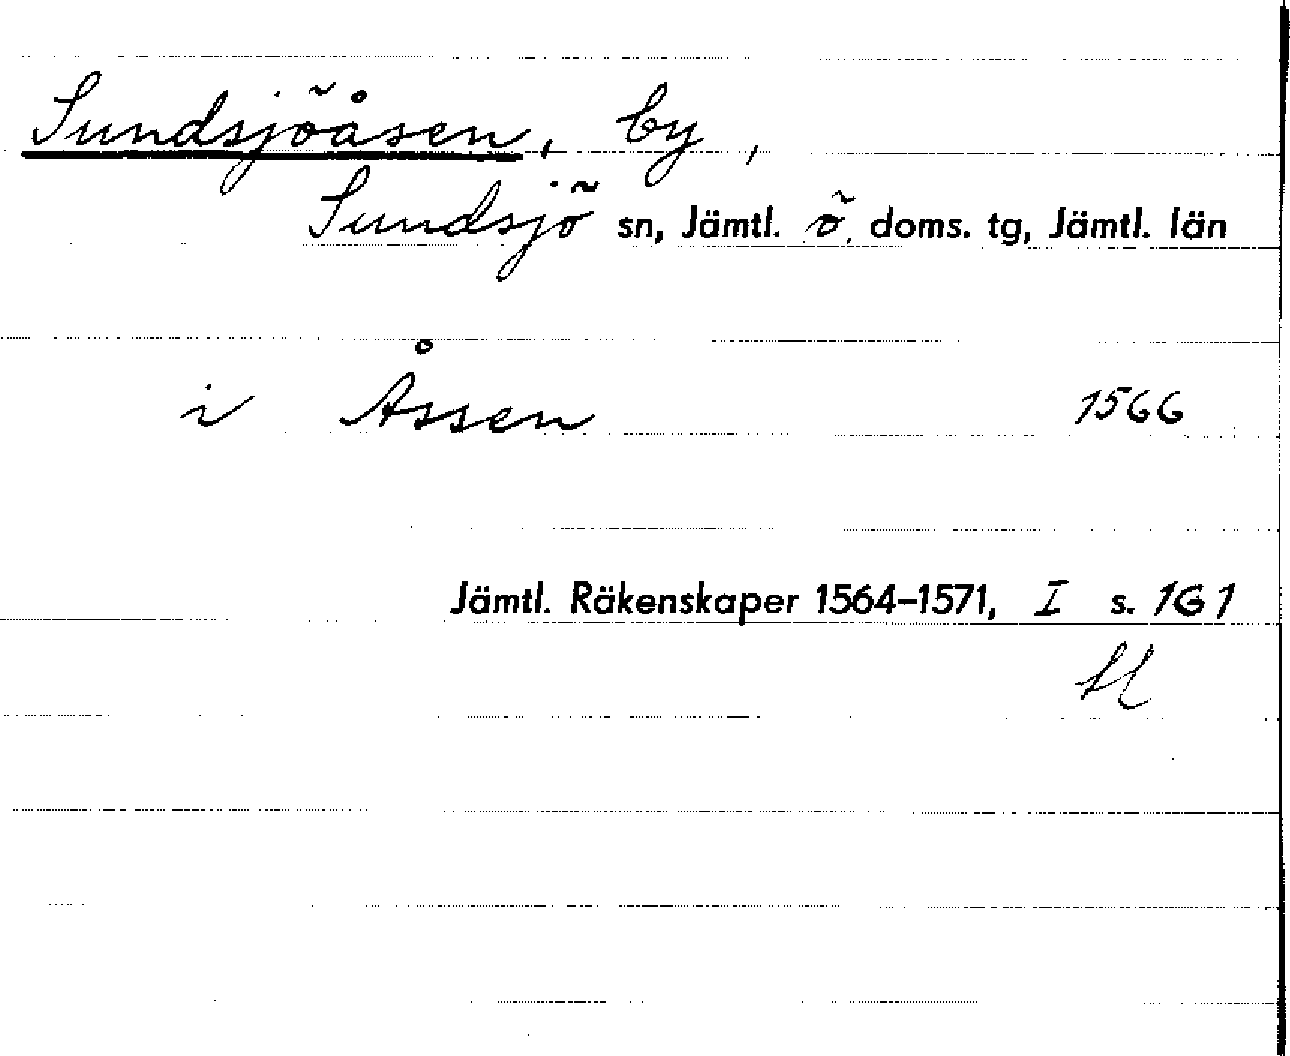 Sundsjöåsen, by,
Sundsjö sn, Jämtl. ö. doms. tg, Jämtl. län
i Åssen 1566
Jämtl. Räkenskaper 1564–1571, I s. 161